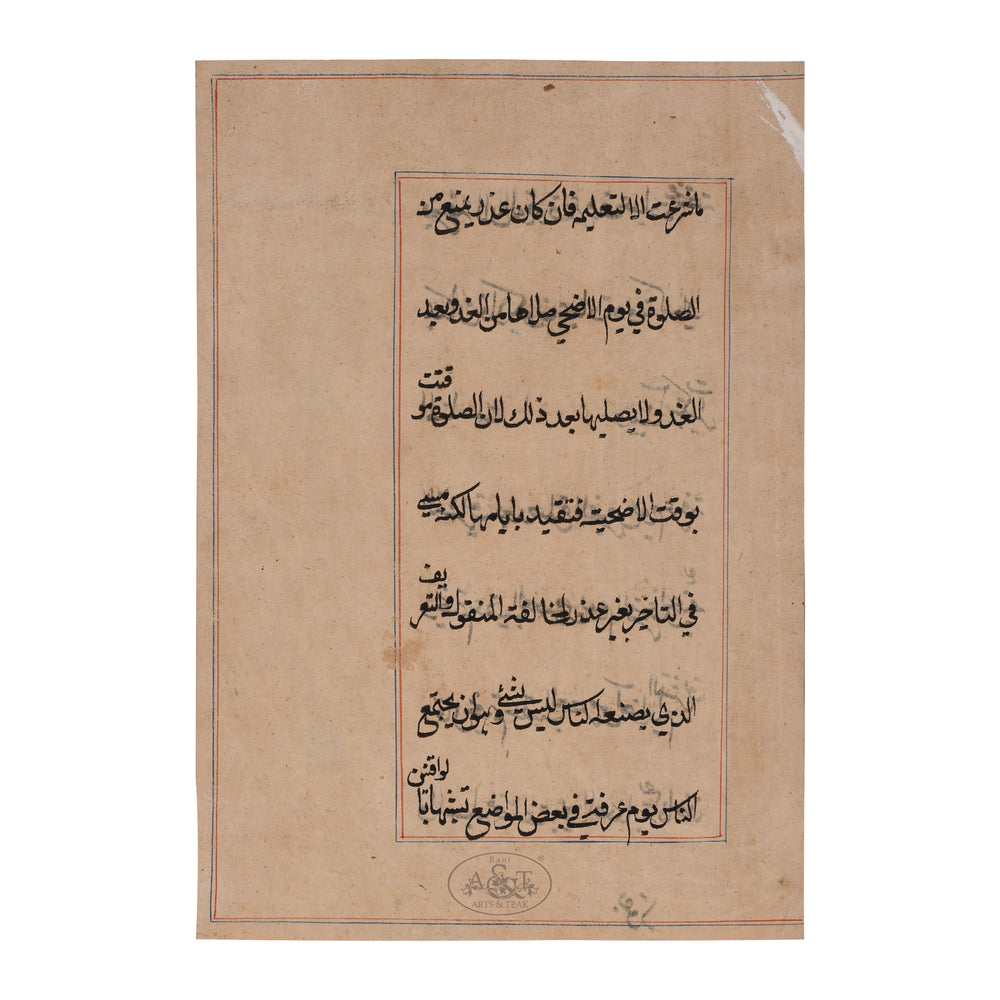 ماشرعت الا لتعليمه فان كان عذر يمنع من
الصلوة في يوم الاضحي صلاها من الغد وبعد
الغد ولا يصليها بعد ذلك لان الصلوة موقتت
بوقت الاضحية فتقيد بايامها لكنه مسيي
في التاخير بغير عذر لمخالفة المنقول والتعريف
الذي يصنعه الناس ليس بشئ وهو ان يجتمع
الناس يوم عرفة في بعض المواضع تشبها بالواقفين
Rani
A&T
ARTS & TEAK
®